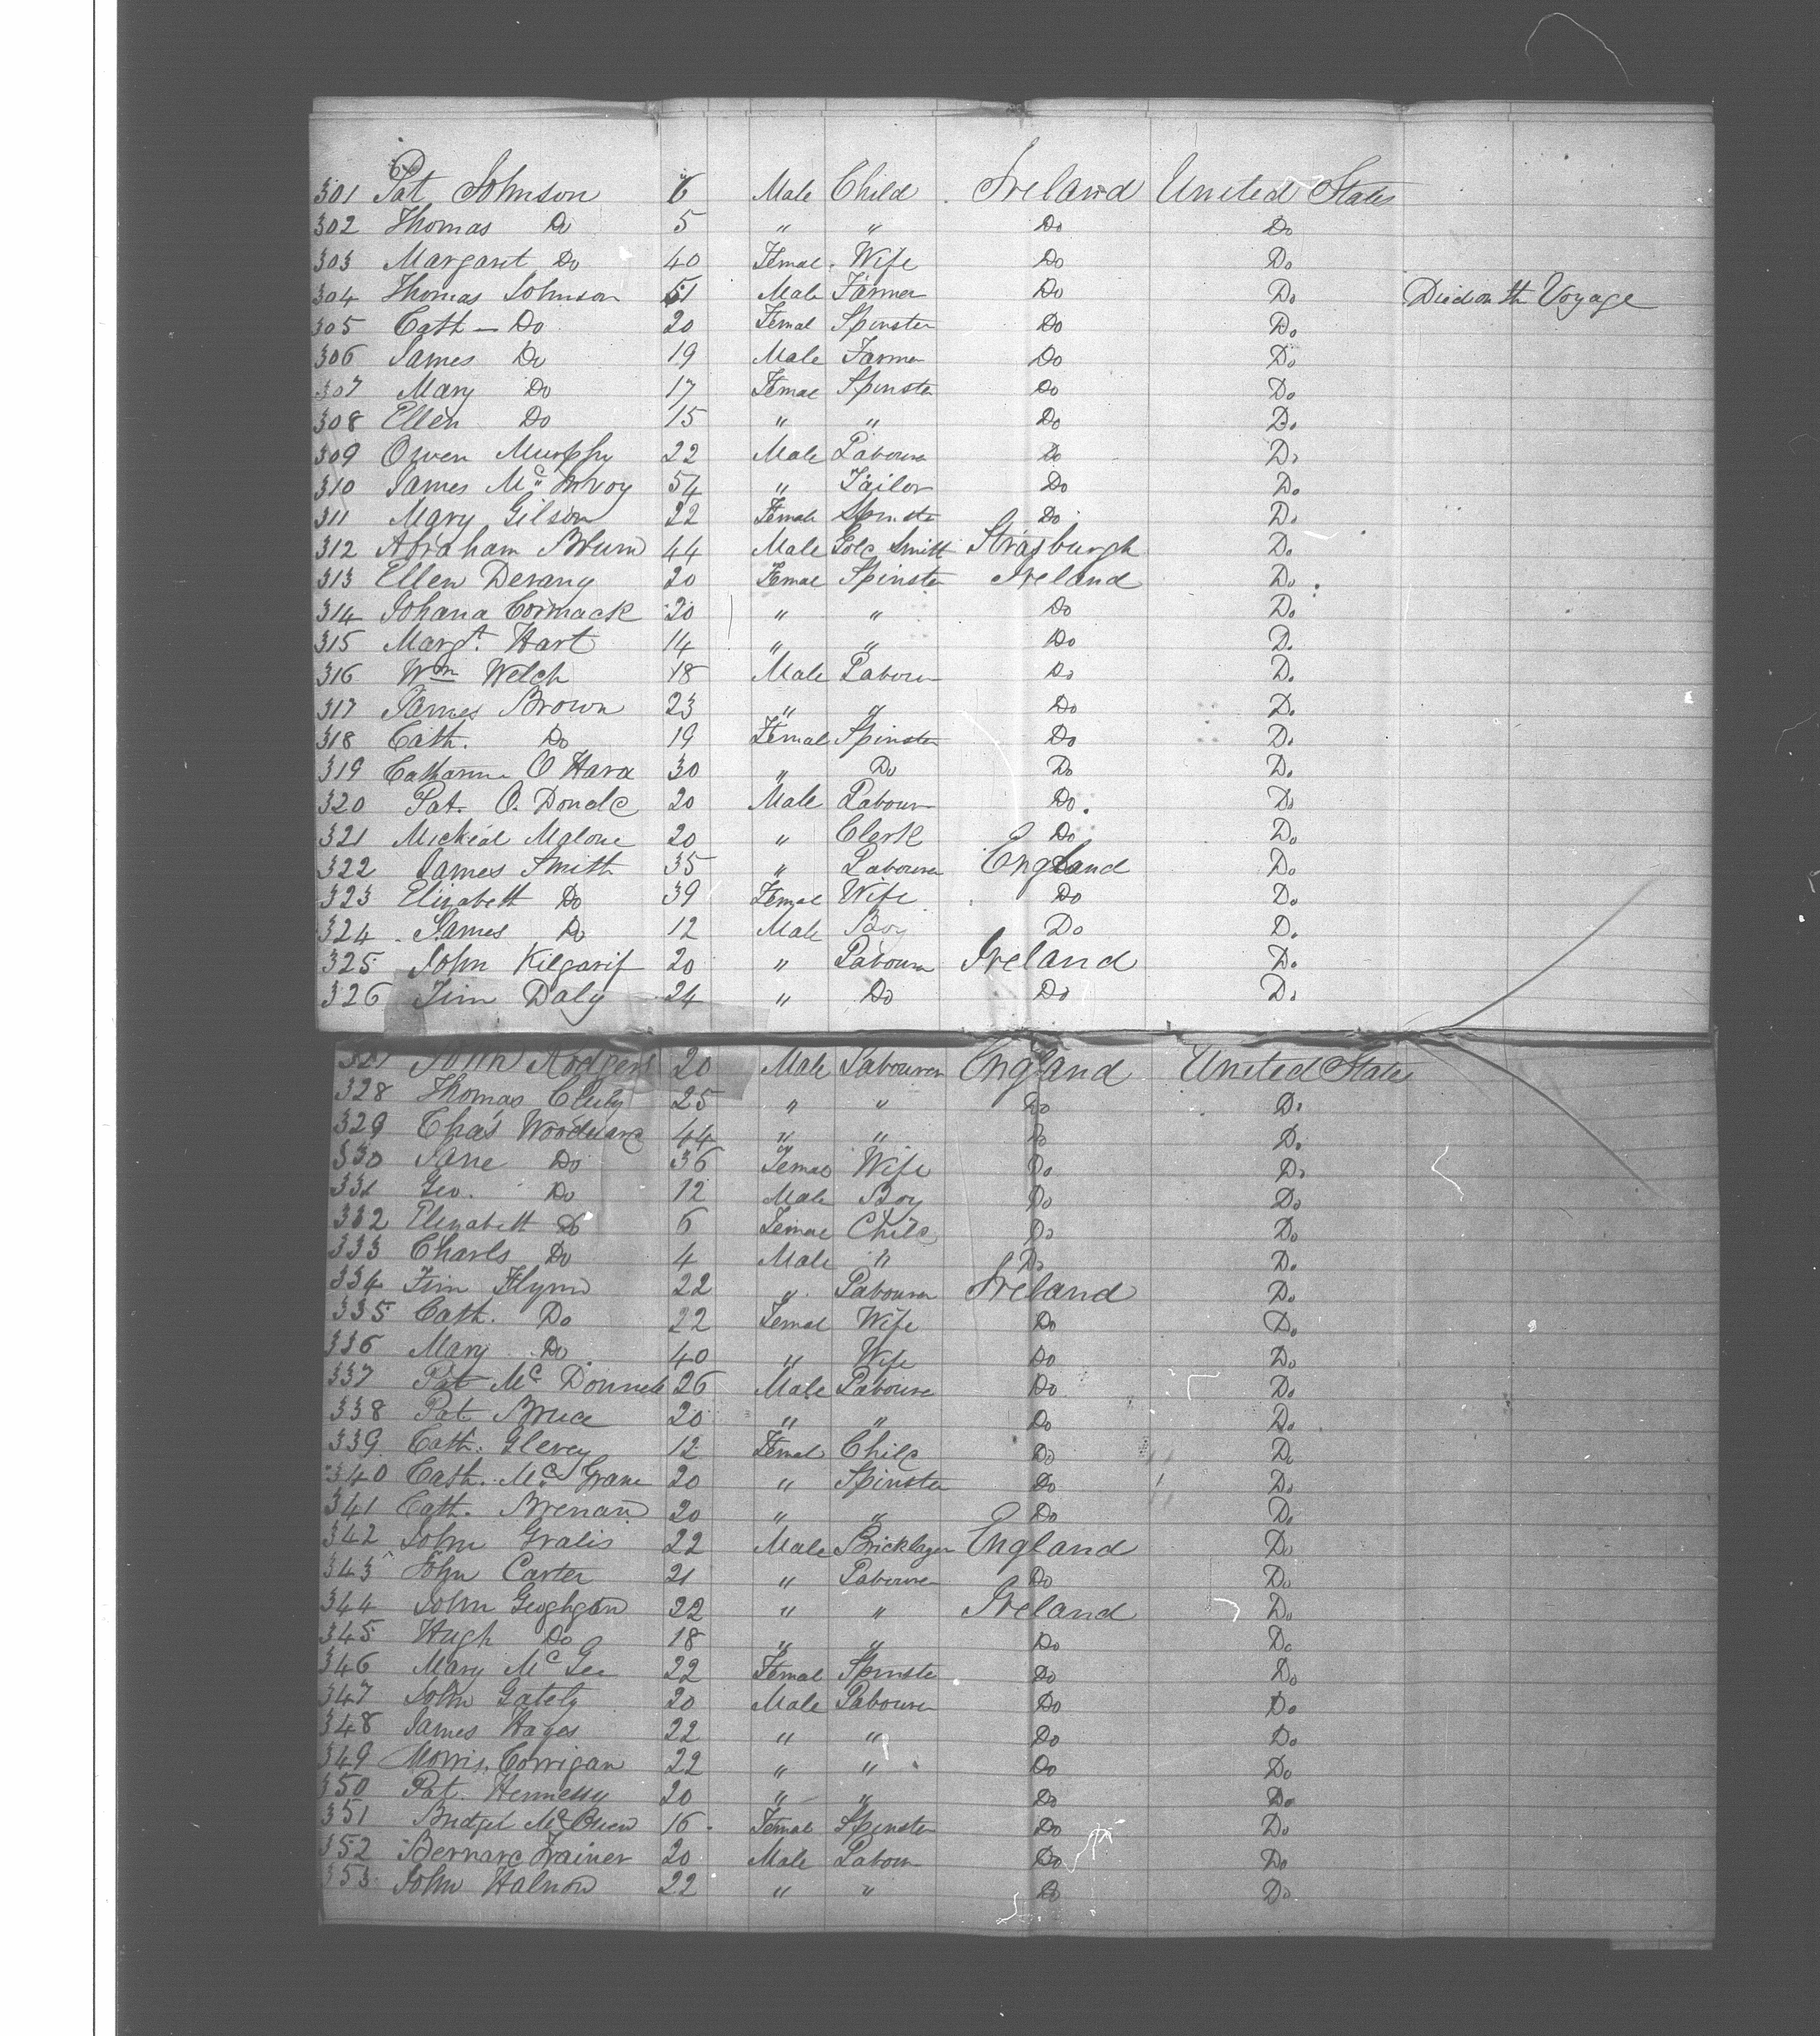 301 Pat Johnson 6 Male Child Ireland United States
302 Thomas Do 5 " " Do Do
303 Margaret Do 40 Femal Wife Do Do
304 Thomas Johnson 51 Male Farmer Do Do Died on th Voyage
305 Cath - Do 20 Femal Spinster Do Do
306 James Do 19 Male Farmer Do Do
307 Mary Do 17 Femal Spinster Do Do
308 Ellen Do 15 " " Do Do
309 Owen Murphy 22 Male Labourer Do Do
310 James McAvoy 54 " Tailor Do Do
311 Mary Gilson 22 Female Spinster Do Do
312 Abraham Blum 44 Male Gold Smith Strasburgh Do
313 Ellen Devany 20 Femal Spinster Ireland Do
314 Johana Cormack 20 " " Do Do
315 Margt. Hart 14 " " Do Do
316 Wm Welch 18 Male Labourer Do Do
317 James Brown 23 " " Do Do
318 Cath. Do 19 Femal Spinster Do Do
319 Catharine O Hara 30 " Do Do Do
320 Pat. O. Donel 20 Male Labourer Do Do
321 Mickeal Malone 20 " Clerk Do Do
322 James Smith 35 " Labourer England Do
323 Elizabeth Do 39 Femal Wife Do Do
324 James Do 12 Male Boy Do Do
325 John Kilgarif 20 " Labourer Ireland Do
326 Tim Daly 24 " Do Do Do
327 John Rodgers 20 Male Labourer England United States
328 Thomas Cluly 25 " " Do Do
329 Chas Woodward 44 " " Do Do
330 Jane Do 36 Femal Wife Do Do
331 Geo. Do 12 Male Boy Do Do
332 Elizabeth Do 6 Femal Child Do Do
333 Charls Do 4 Male " Do Do
334 Tim Flynn 22 " Labourer Ireland Do
335 Cath. Do 22 Femal Wife Do Do
336 Mary Do 40 " Wife Do Do
337 Pat Mc Donnell 26 Male Labourer Do Do
338 Pat Bruce 20 " " Do Do
339 Cath. Glevey 12 Femal Child Do Do
340 Cath. Mc Grane 20 " Spinster Do Do
341 Cath. Brenan 20 " " Do Do
342 John Gralis 22 Male Bricklayer England Do
343 John Carter 21 " Labourer Do Do
344 John Geoghgan 22 " " Ireland Do
345 Hugh Do 18 " " Do Do
346 Mary Mc Gee 22 Femal Spinster Do Do
347 John Gately 20 Male Labourer Do Do
348 James Hayes 22 " " Do Do
349 Morris Corrigan 22 " " Do Do
350 Pat. Hennessy 20 " " Do Do
351 Bridget 16 Femal Spinster Do Do
352 Bernard Trainer 20 Male Labour Do Do
353 John Halnon 22 " " Do Do